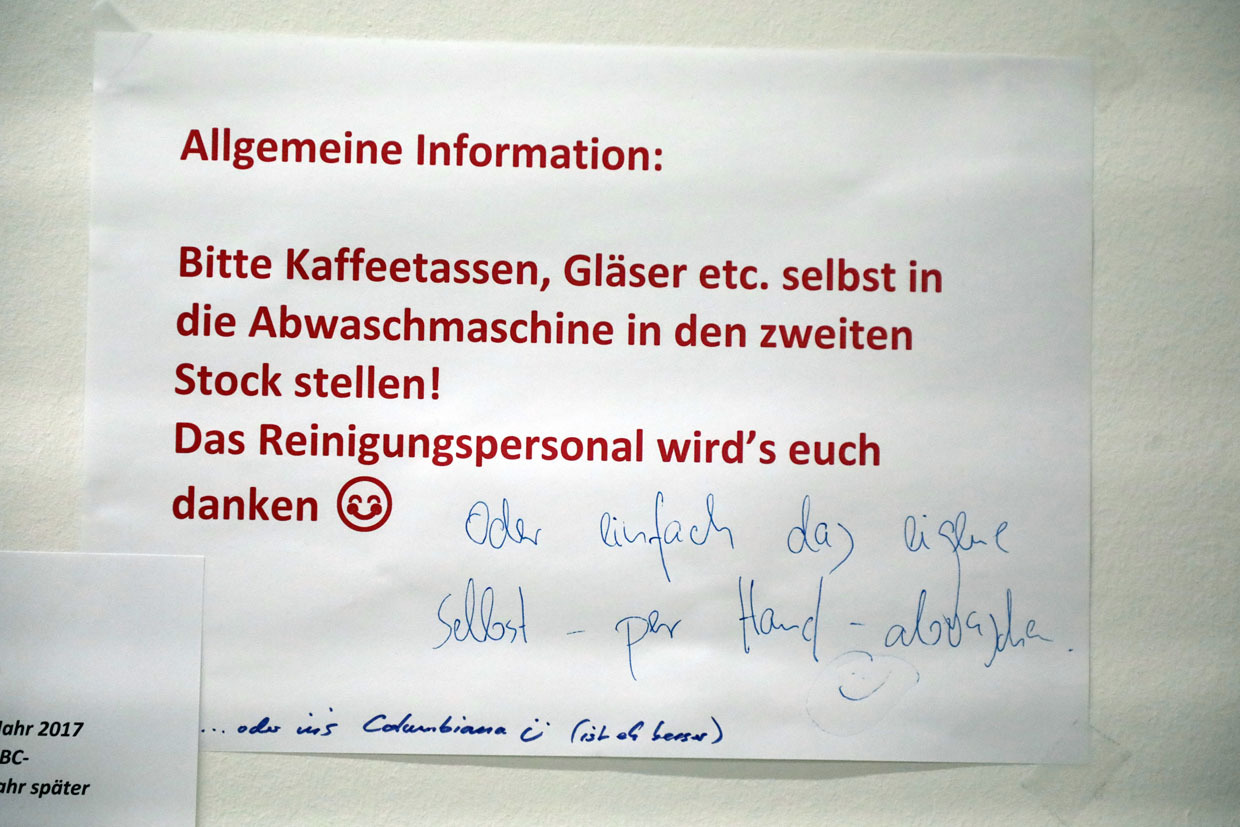 Allgemeine Information:
Bitte Kaffeetassen, Gläser etc. selbst in
die Abwaschmaschine in den zweiten
Stock stellen!
Das Reinigungspersonal wird's euch
danken 😊
Oder einfach das eigene
selbst - per Hand - abwaschen.
... oder in's Columbiana ü (ist eh besser)
Jahr 2017
BC-
ahr später